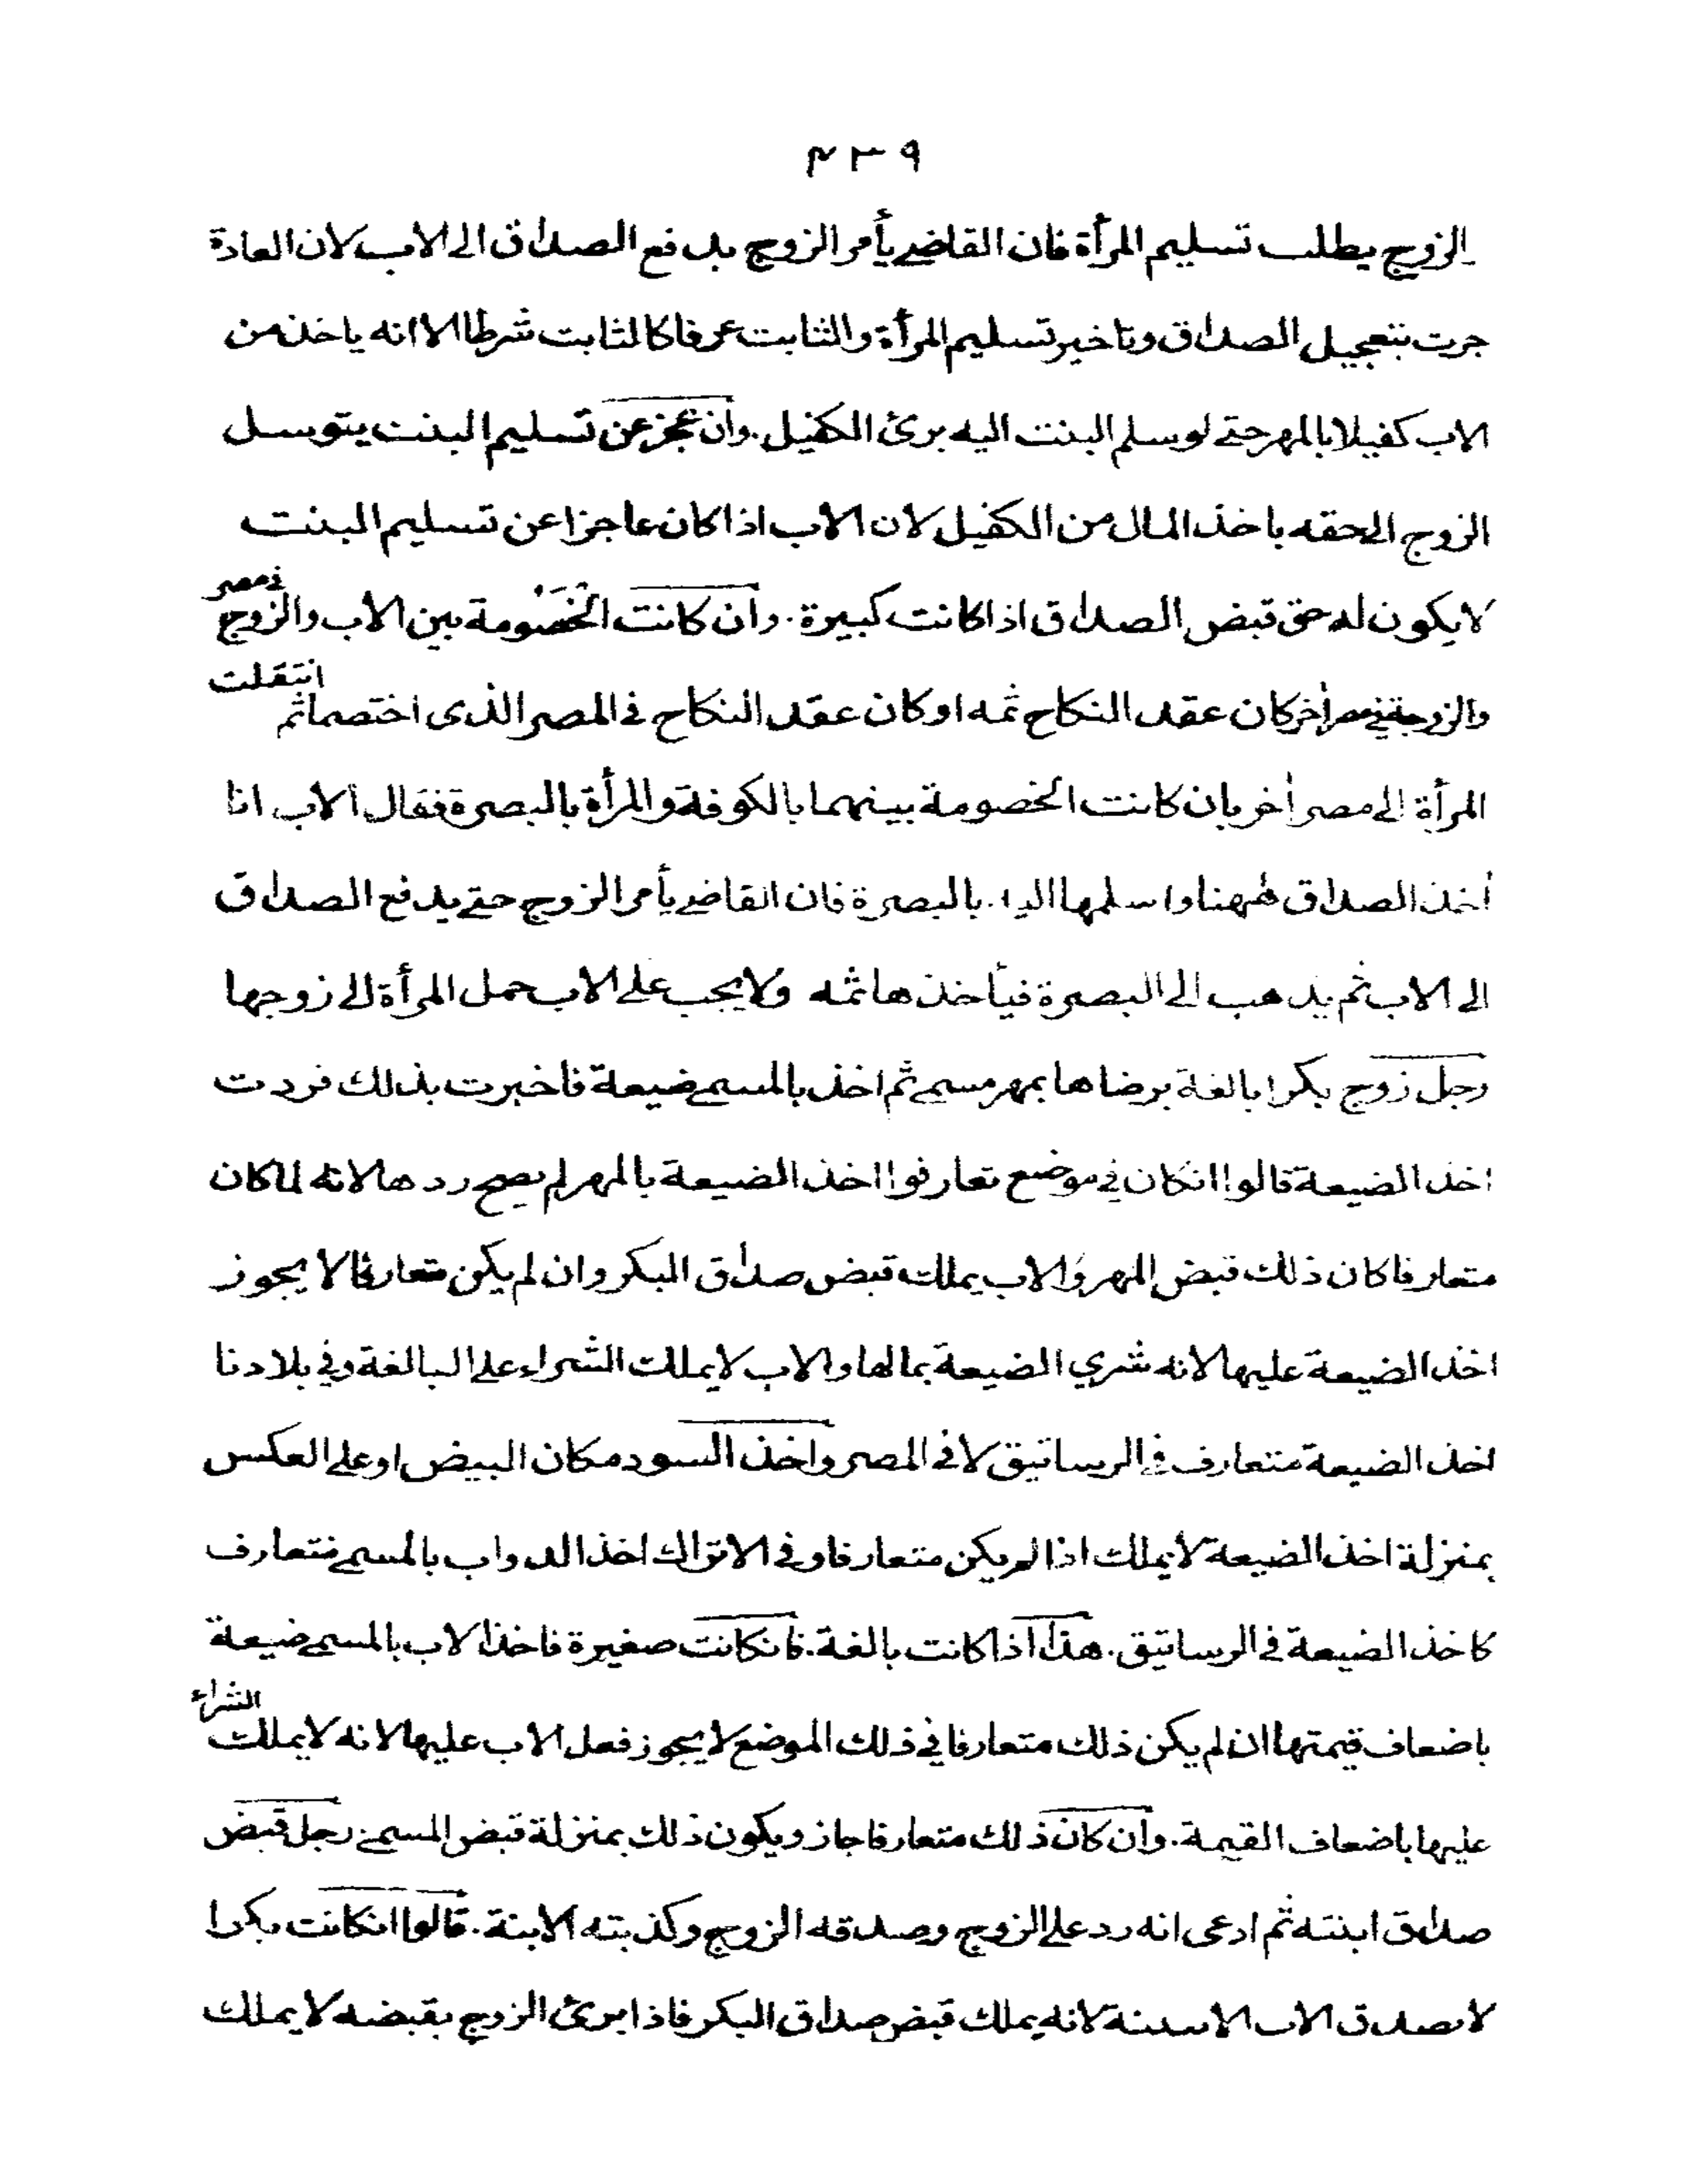 ٤٣٩
الزوج يطلب تسليم المرأة فان القاضي يأمر الزوج بدفع الصداق الى الاب لان العادة
جرت بتعجيل الصداق وتاخير تسليم المرأة والثابت عرفا كالثابت شرطا الا انه ياخذ من
الاب كفيلا بالمهر حتى لو سلم البنت اليه برئ الكفيل . وان عجز عن تسليم البنت يتوسل
الزوج الى حقه باخذ المال من الكفيل لان الاب اذا كان عاجزا عن تسليم البنت
لا يكون له حق قبض الصداق اذا كانت كبيرة . وان كانت الخصومة بين الاب والزوج في مصر
والزوجة في مصر أخر كان عقد النكاح ثمه او كان عقد النكاح في المصر الذى اختصما ثم انتقلت
المرأة الى مصر أخر بان كانت الخصومة بينهما بالكوفة والمرأة بالبصرة فقال الاب انا
أخذ الصداق ههنا واسلمها اليه بالبصرة فان القاضي يأمر الزوج حتى يدفع الصداق
الى الاب ثم يذهب الى البصرة فيأخذها ثمه ولا يجب على الاب حمل المرأة الى زوجها
رجل زوج بكرا بالغة برضاها بمهر مسمى ثم اخذ بالمسمى ضيعة فاخبرت بذلك فردت
اخذ الضيعة قالوا انكان في موضع تعارفوا اخذ الضيعة بالمهر لم يصح ردها لانه لما كان
متعارفا كان ذلك قبض المهر والاب يملك قبض صداق البكر وان لم يكن متعارفا لا يجوز
اخذ الضيعة عليها لانه شري الضيعة بمالها والاب لا يملك الشراء على البالغة وفي بلادنا
اخذ الضيعة متعارف في الرساتيق لا في المصر واخذ السود مكان البيض او على العكس
بمنزلة اخذ الضيعة لا يملك اذا لم يكن متعارفا وفي الاتراك اخذ الدواب بالمسمى متعارف
كاخذ الضيعة في الرساتيق . هذا اذا كانت بالغة . فانكانت صغيرة فاخذ الاب بالمسمى ضيعة
باضعاف قيمتها ان لم يكن ذلك متعارفا في ذلك الموضع لا يجوز فعل الاب عليها لانه لا يملك الشراء
عليها باضعاف القيمة . وان كان ذلك متعارفا جاز ويكون ذلك بمنزلة قبض المسمى رجل قبض
صداق ابنته ثم ادعى انه رد على الزوج وصدقه الزوج وكذبته الابنة . قالوا انكانت بكرا
لا يصدق الاب الا ببينة لانه يملك قبض صداق البكر فاذا برئ الزوج بقبضه لا يملك